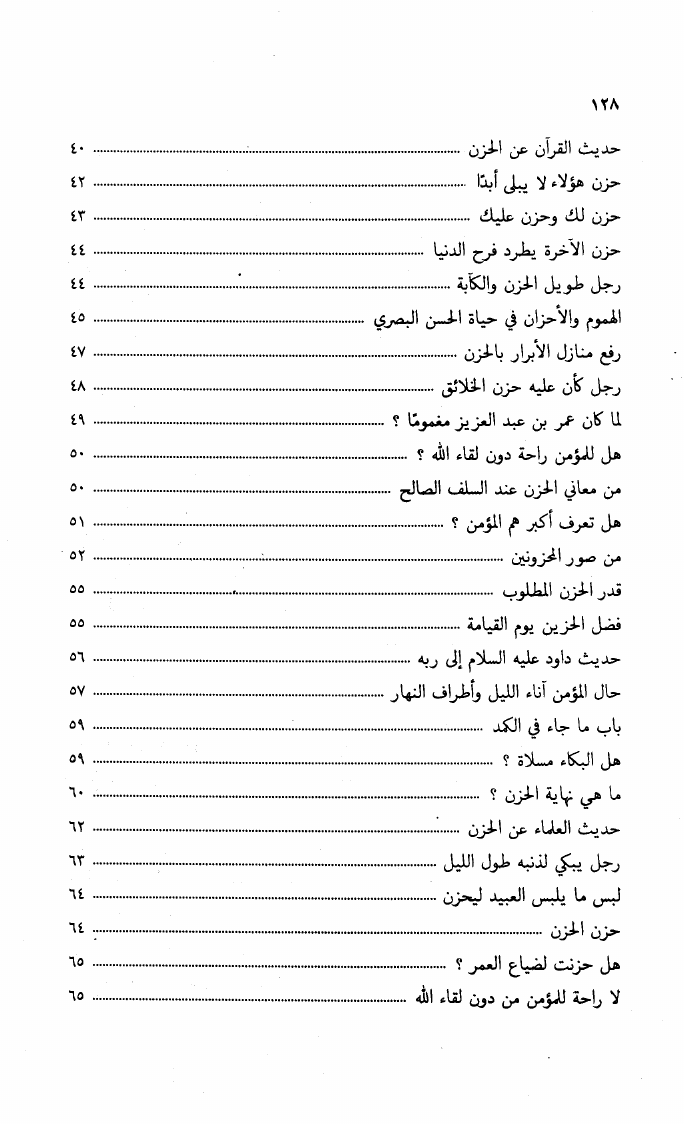 ١٢٨
حديث القرآن عن الحزن ........ ٤٠
حزن هؤلاء لا يبلى أبدًا ........ ٤٢
حزن لك وحزن عليك ........ ٤٣
حزن الآخرة يطرد فرح الدنيا ........ ٤٤
رجل طويل الحزن والكآبة ........ ٤٤
الهموم والأحزان في حياة الحسن البصري ........ ٤٥
رفع منازل الأبرار بالحزن ........ ٤٧
رجل كأن عليه حزن الخلائق ........ ٤٨
لما كان عمر بن عبد العزيز مغمومًا ؟ ........ ٤٩
هل للمؤمن راحة دون لقاء الله ؟ ........ ٥٠
من معاني الحزن عند السلف الصالح ........ ٥٠
هل تعرف أكبر هم المؤمن ؟ ........ ٥١
من صور المحزونين ........ ٥٢
قدر الحزن المطلوب ........ ٥٥
فضل الحزين يوم القيامة ........ ٥٥
حديث داود عليه السلام إلى ربه ........ ٥٦
حال المؤمن آناء الليل وأطراف النهار ........ ٥٧
باب ما جاء في الكمد ........ ٥٩
هل البكاء مسلاة ؟ ........ ٥٩
ما هي نهاية الحزن ؟ ........ ٦٠
حديث العلماء عن الحزن ........ ٦٢
رجل يبكي لذنبه طول الليل ........ ٦٣
لبس ما يلبس العبيد ليحزن ........ ٦٤
حزن الحزن ........ ٦٤
هل حزنت لضياع العمر ؟ ........ ٦٥
لا راحة للمؤمن من دون لقاء الله ........ ٦٥